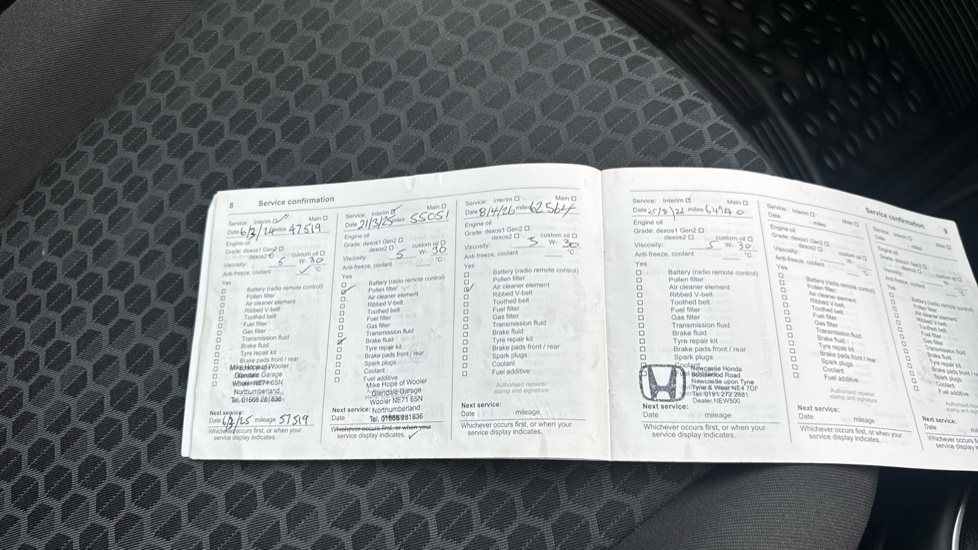 8 Service confirmation
Service: Interim ☑ Main ☐
Date 6/2/24 miles 47519
Engine oil
Grade: dexos1 Gen2 ☐
dexos2 ☐ custom oil ☐
Viscosity: 5 W- 30
Anti-freeze, coolant ✓ °C
Yes
☐ Battery (radio remote control)
☐ Pollen filter
☐ Air cleaner element
☐ Ribbed V-belt
☐ Toothed belt
☐ Fuel filter
☐ Gas filter
☐ Transmission fluid
☐ Brake fluid
☐ Tyre repair kit
☐ Brake pads front / rear
Mike Hope of Wooler
Glendale Garage
Wooler NE71 6SN
Northumberland
Tel. 01668 281836
Next service:
Date 6/2/25 mileage 57519
Whichever occurs first, or when your
service display indicates.
Service: Interim ☑ Main ☐
Date 21/3/25 miles 55051
Engine oil
Grade: dexos1 Gen2 ☐
dexos2 ☐ custom oil ☐
Viscosity: 5 W- 30
Anti-freeze, coolant °C
Yes
☐ Battery (radio remote control)
☑ Pollen filter
☐ Air cleaner element
☐ Ribbed V-belt
☐ Toothed belt
☐ Fuel filter
☐ Gas filter
☐ Transmission fluid
☑ Brake fluid
☐ Tyre repair kit
☐ Brake pads front / rear
☐ Spark plugs
☐ Coolant
☐ Fuel additive
Mike Hope of Wooler
Glendale Garage
Wooler NE71 6SN
Next service: Northumberland
Date Tel. 01668 281836
Whichever occurs first, or when your
service display indicates. ✓
Service: Interim ☐ Main ☐
Date 8/4/26 miles 62564
Engine oil
Grade: dexos1 Gen2 ☐
dexos2 ☐ custom oil ☐
Viscosity: 5 W- 30
Anti-freeze, coolant °C
Yes
☐ Battery (radio remote control)
☐ Pollen filter
☑ Air cleaner element
☐ Ribbed V-belt
☐ Toothed belt
☐ Fuel filter
☐ Gas filter
☐ Transmission fluid
☐ Brake fluid
☐ Tyre repair kit
☐ Brake pads front / rear
☐ Spark plugs
☐ Coolant
☐ Fuel additive
Authorised repairer
stamp and signature
Next service:
Date mileage
Whichever occurs first, or when your
service display indicates.
Service confirmation 9
Service: Interim ☐ Main ☐
Date miles 64940
Engine oil
Grade: dexos1 Gen2 ☐
dexos2 ☐ custom oil ☐
Viscosity: 5 W- 30
Anti-freeze, coolant °C
Yes
☐ Battery (radio remote control)
☐ Pollen filter
☐ Air cleaner element
☐ Ribbed V-belt
☐ Toothed belt
☐ Fuel filter
☐ Gas filter
☐ Transmission fluid
☐ Brake fluid
☐ Tyre repair kit
☐ Brake pads front / rear
☐ Spark plugs
☐ Coolant
Newcastle Honda
Road
Newcastle upon Tyne
Tyne & Wear NE4 7DF
Tel: 0191 272 2881
Dealer NEW500
Next service:
Date mileage
Whichever occurs first, or when your
service display indicates.
Service: Interim ☐ Main ☐
Date miles
Engine oil
Grade: dexos1 Gen2 ☐
dexos2 ☐ custom oil ☐
Viscosity: W-
Anti-freeze, coolant °C
Yes
☐ Battery (radio remote control)
☐ Pollen filter
☐ Air cleaner element
☐ Ribbed V-belt
☐ Toothed belt
☐ Fuel filter
☐ Gas filter
☐ Transmission fluid
☐ Brake fluid
☐ Tyre repair kit
☐ Brake pads front / rear
☐ Spark plugs
☐ Coolant
☐ Fuel additive
Authorised repairer
stamp and signature
Next service:
Date mileage
Whichever occurs first, or when your
service display indicates.
Service: Interim ☐ Main ☐
Date miles
Engine oil
Grade: dexos1 Gen2 ☐
dexos2 ☐ custom oil ☐
Viscosity: W-
Anti-freeze, coolant
Yes
☐ Battery (radio remote control)
☐ Pollen filter
☐ Air cleaner element
☐ Ribbed V-belt
☐ Toothed belt
☐ Fuel filter
☐ Gas filter
☐ Transmission fluid
☐ Brake fluid
☐ Tyre repair kit
☐ Brake pads front
☐ Spark plugs
☐ Coolant
☐ Fuel additive
Next service:
Date
Whichever occurs
service display